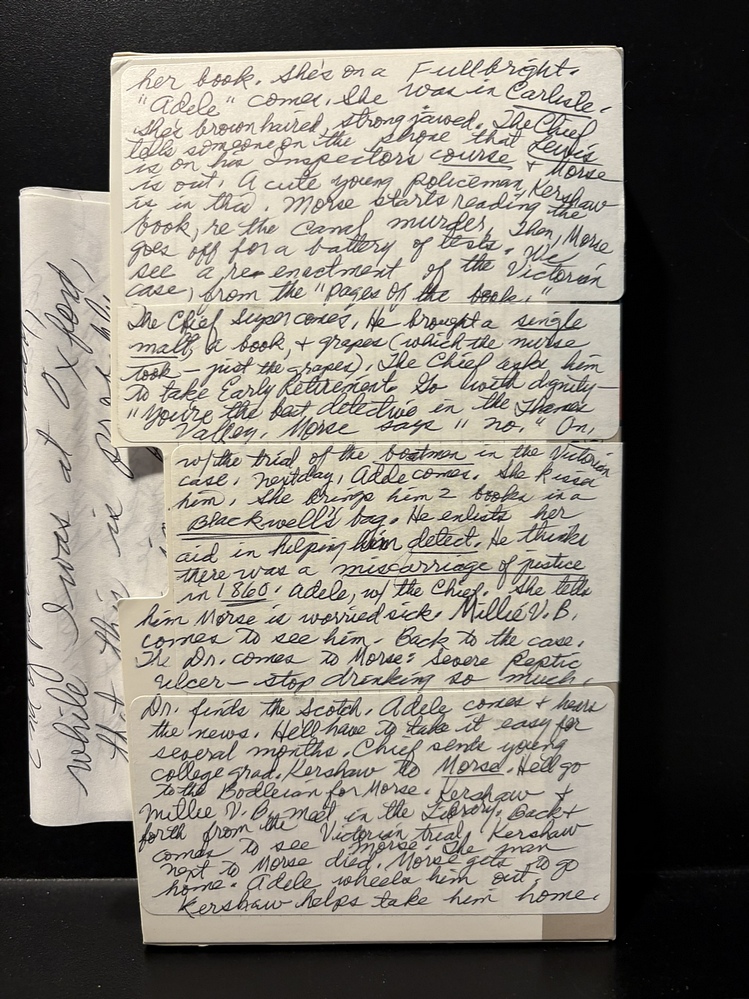 her book. She's on a Fullbright.
"Adele" comes. She was in Carlisle.
She's brown haired, strong jawed. The Chief
tells someone on the phone that Lewis
is on his Inspectors course & Morse
is out. A cute young policeman, Kershaw
is in this. Morse starts reading the
book, re the canal murder. Then, Morse
goes off for a battery of tests. We
see a re-enactment of the Victorian
case, from the "pages of the book."
The Chief Super comes. He brought a single
malt, a book, & grapes (which the nurse
took – just the grapes). The Chief asks him
to take Early Retirement. Go with dignity –
"you're the best detective in the Thames
Valley. Morse says "no." On,
w/ the trial of the boatmen in the Victorian
case. Next day, Adele comes. She kisses
him. She brings him 2 books in a
Blackwell's bag. He enlists her
aid in helping him detect. He thinks
there was a miscarriage of justice
in 1860. Adele, w/ the Chief. She tells
him Morse is worried sick. Millie V.B.
comes to see him. Back to the case.
The Dr. comes to Morse: Severe Peptic
Ulcer – stop drinking so much.
Dr. finds the Scotch. Adele comes & hears
the news. He'll have to take it easy for
several months. Chief sends young
college grad. Kershaw to Morse. He'll go
to the Bodleian for Morse. Kershaw &
Millie V.B. meet in the Library. Back &
forth from the Victorian trial, Kershaw
comes to see Morse. The man
next to Morse died. Morse gets to go
home. Adele wheels him out,
Kershaw helps take him home.
while I was at Oxford,
that this is